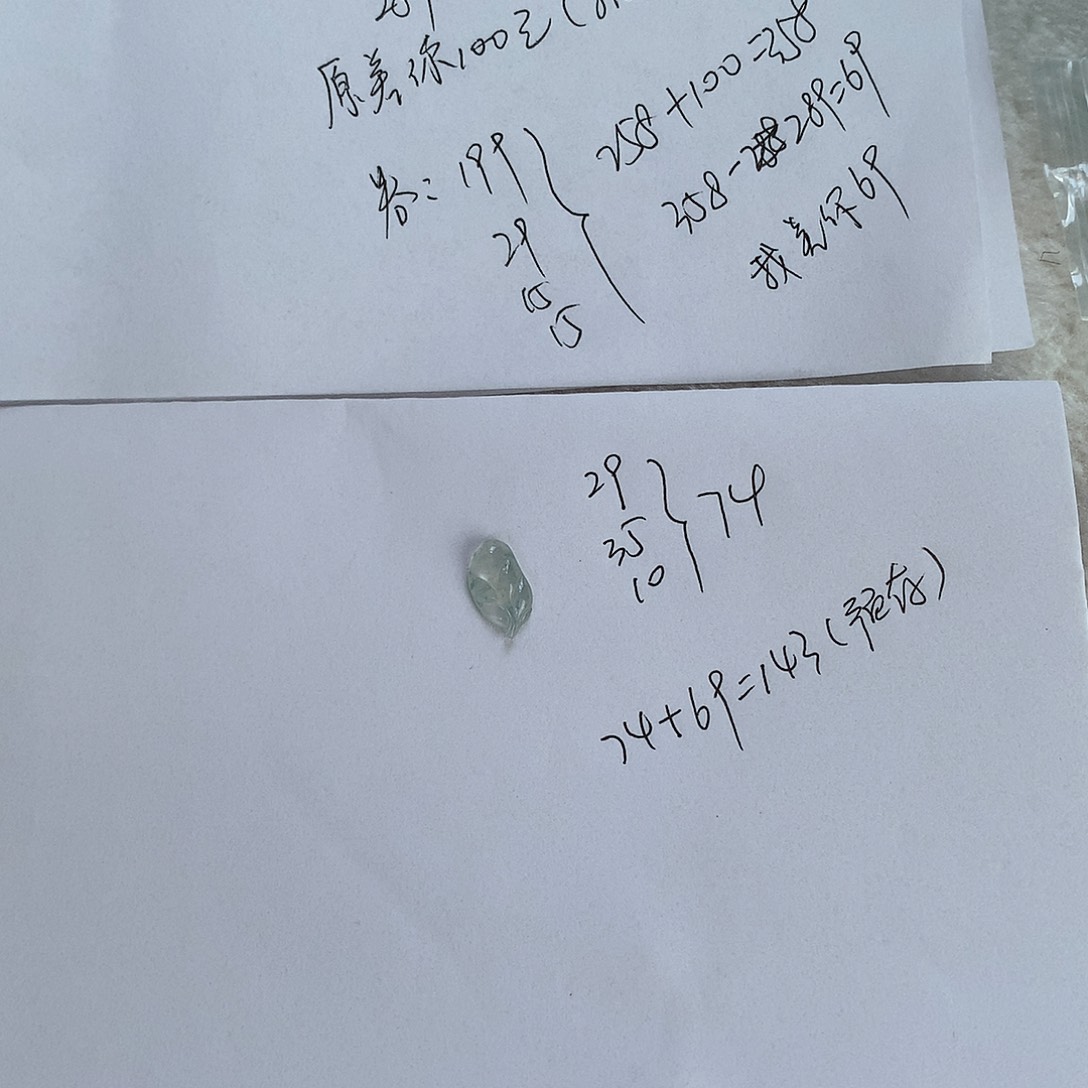 289
原差你100元(
卷: 199
29
15
15
258+100=358
358-289=69
我差你69
29
35
10
74
74+69=143(预存)